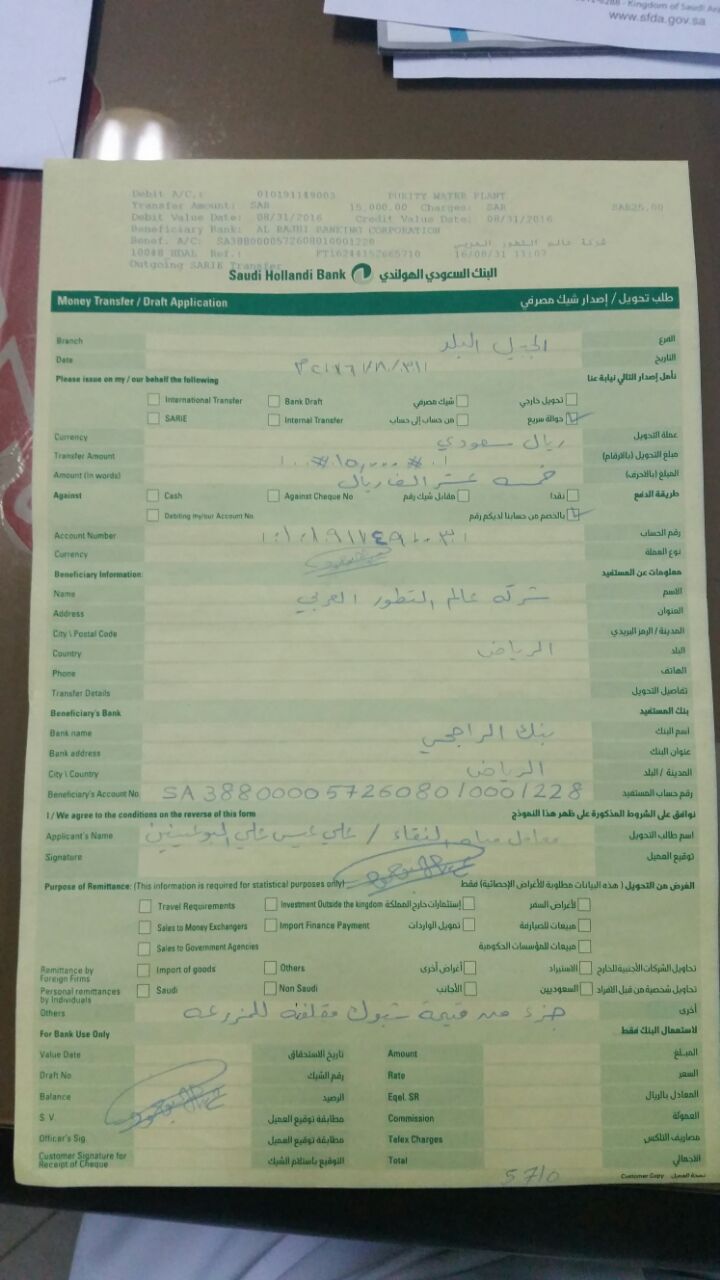 Kingdom of Saudi
www.sfda.gov.sa
Debit A/C.: 010191149003 PURITY WATER PLANT
Transfer Amount: SAR 15,000.00 Charges: SAR SAR25.00
Debit Value Date: 08/31/2016 Credit Value Date: 08/31/2016
Beneficiary Bank: AL RAJHI BANKING CORPORATION
Benef. A/C: شركة عالم التطور العربي
Ref.: FT16244152665710 16/08/31 11:07
Outgoing SARIE Transfer
Saudi Hollandi Bank البنك السعودي الهولندي
Money Transfer / Draft Application طلب تحويل / إصدار شيك مصرفي
Branch الجبيل البلد الفرع
Date التاريخ
Please issue on my / our behalf the following نأمل إصدار التالي نيابة عنا
International Transfer Bank Draft شيك مصرفي تحويل خارجي
SARIE Internal Transfer من حساب إلى حساب حوالة سريع
Currency ريال سعودي عملة التحويل
Transfer Amount مبلغ التحويل (بالارقام)
Amount (in words) خمسه عشر الف ريال المبلغ (بالاحرف)
Against Cash Against Cheque No مقابل شيك رقم نقدا طريقة الدفع
Debiting my/our Account No. بالخصم من حسابنا لديكم رقم
Account Number رقم الحساب
Currency نوع العملة
Beneficiary Information معلومات عن المستفيد
Name شركه عالم التطور العربي الاسم
Address العنوان
City \ Postal Code المدينة / الرمز البريدي
Country الرياض البلد
Phone الهاتف
Transfer Details تفاصيل التحويل
Beneficiary's Bank بنك المستفيد
Bank name بنك الراجحي اسم البنك
Bank address عنوان البنك
City \ Country الرياض المدينة / البلد
Beneficiary's Account No. SA3880000572608010001228 رقم حساب المستفيد
I / We agree to the conditions on the reverse of this form نوافق على الشروط المذكورة على ظهر هذا النموذج
Applicant's Name النقاء / علي عيسى علي اسم طالب التحويل
Signature توقيع العميل
Purpose of Remittance: (This information is required for statistical purposes only) الغرض من التحويل ( هذه البيانات مطلوبة للأغراض الإحصائية) فقط
Travel Requirements Investment Outside the kingdom إستثمارات خارج المملكة لأغراض السفر
Sales to Money Exchangers Import Finance Payment تمويل الواردات مبيعات للصيارفة
Sales to Government Agencies مبيعات للمؤسسات الحكومية
Remittance by Foreign Firms Import of goods Others أغراض أخرى الاستيراد تحاويل الشركات الأجنبية للخارج
Personal remittances by Individuals Saudi Non Saudi الأجانب السعوديين تحاويل شخصية من قبل الافراد
Others جزء من قيمة شبوك مغلفنه للمزرعه أخرى
For Bank Use Only لاستعمال البنك فقط
Value Date تاريخ الاستحقاق Amount المبلغ
Draft No رقم الشيك Rate السعر
Balance الرصيد Eqel. SR المعادل بالريال
S V مطابقة توقيع العميل Commission العمولة
Officer's Sig. مطابقة توقيع العميل Telex Charges مصاريف التلكس
Customer Signature for Receipt of Cheque التوقيع باستلام الشيك Total الاجمالي
5710
Customer Copy نسخة العميل